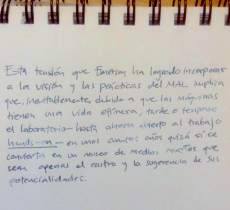 Esta tensión que Emerson ha logrado incorporar
a la visión y las prácticas del MAL implica
que, inevitablemente, debido a que las máquinas
tienen una vida efímera, tarde o temprano
el laboratorio -hasta ahora abierto al trabajo
hands-on- en unos cuantos años quizá si se
convierta en un museo de medios muertos que
sean apenas el rastro y la sugerencia de sus
potencialidades.